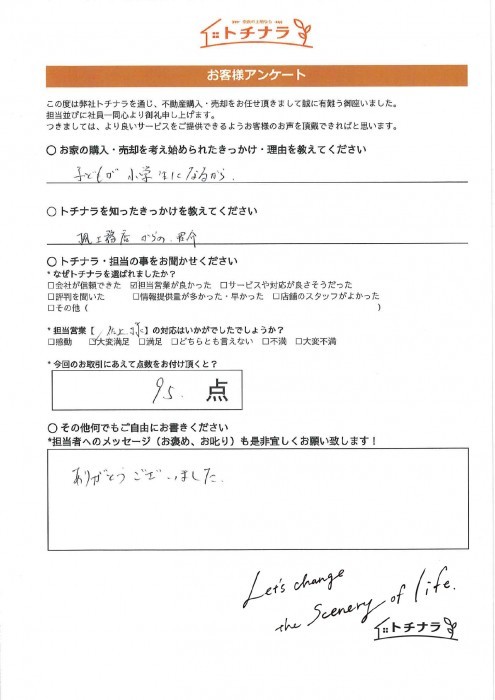 トチナラ
お客様アンケート
この度は弊社トチナラを通じ、不動産購入・売却をお任せ頂きまして誠に有難う御座いました。
担当並びに社員一同心より御礼申し上げます。
つきましては、より良いサービスをご提供できるようお客様のお声を頂戴できればと思います。
〇 お家の購入・売却を考え始められたきっかけ・理由を教えてください
子どもが 小学生になるから。
〇 トチナラを知ったきっかけを教えてください
工務店 からの 紹介
〇 トチナラ・担当の事をお聞かせください
* なぜトチナラを選ばれましたか？
□会社が信頼できた ☑担当営業が良かった □サービスや対応が良さそうだった
□評判を聞いた □情報提供量が多かった・早かった □店舗のスタッフがよかった
□その他（ ）
* 担当営業【 様】の対応はいかがでしたでしょうか？
□感動 ☑大変満足 □満足 □どちらとも言えない □不満 □大変不満
* 今回のお取引にあえて点数をお付け頂くと？
95. 点
〇 その他何でもご自由にお書きください
*担当者へのメッセージ（お褒め、お叱り）も是非宜しくお願い致します！
ありがとうございました。
Let's change
the Scenery of life.
トチナラ